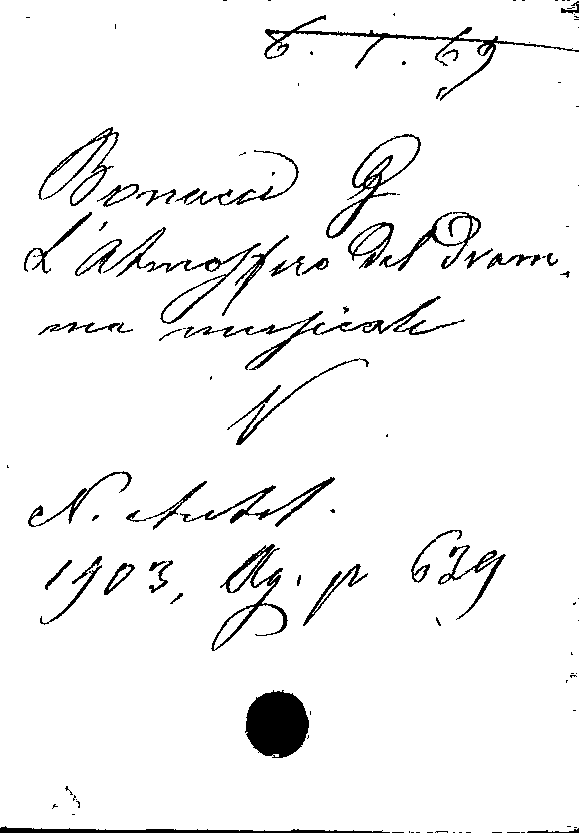 6. 7. 69
Bonacci G
L'Atmosfera del Dram-
ma musicale
V
N. Antol.
1903, Ag. p 639